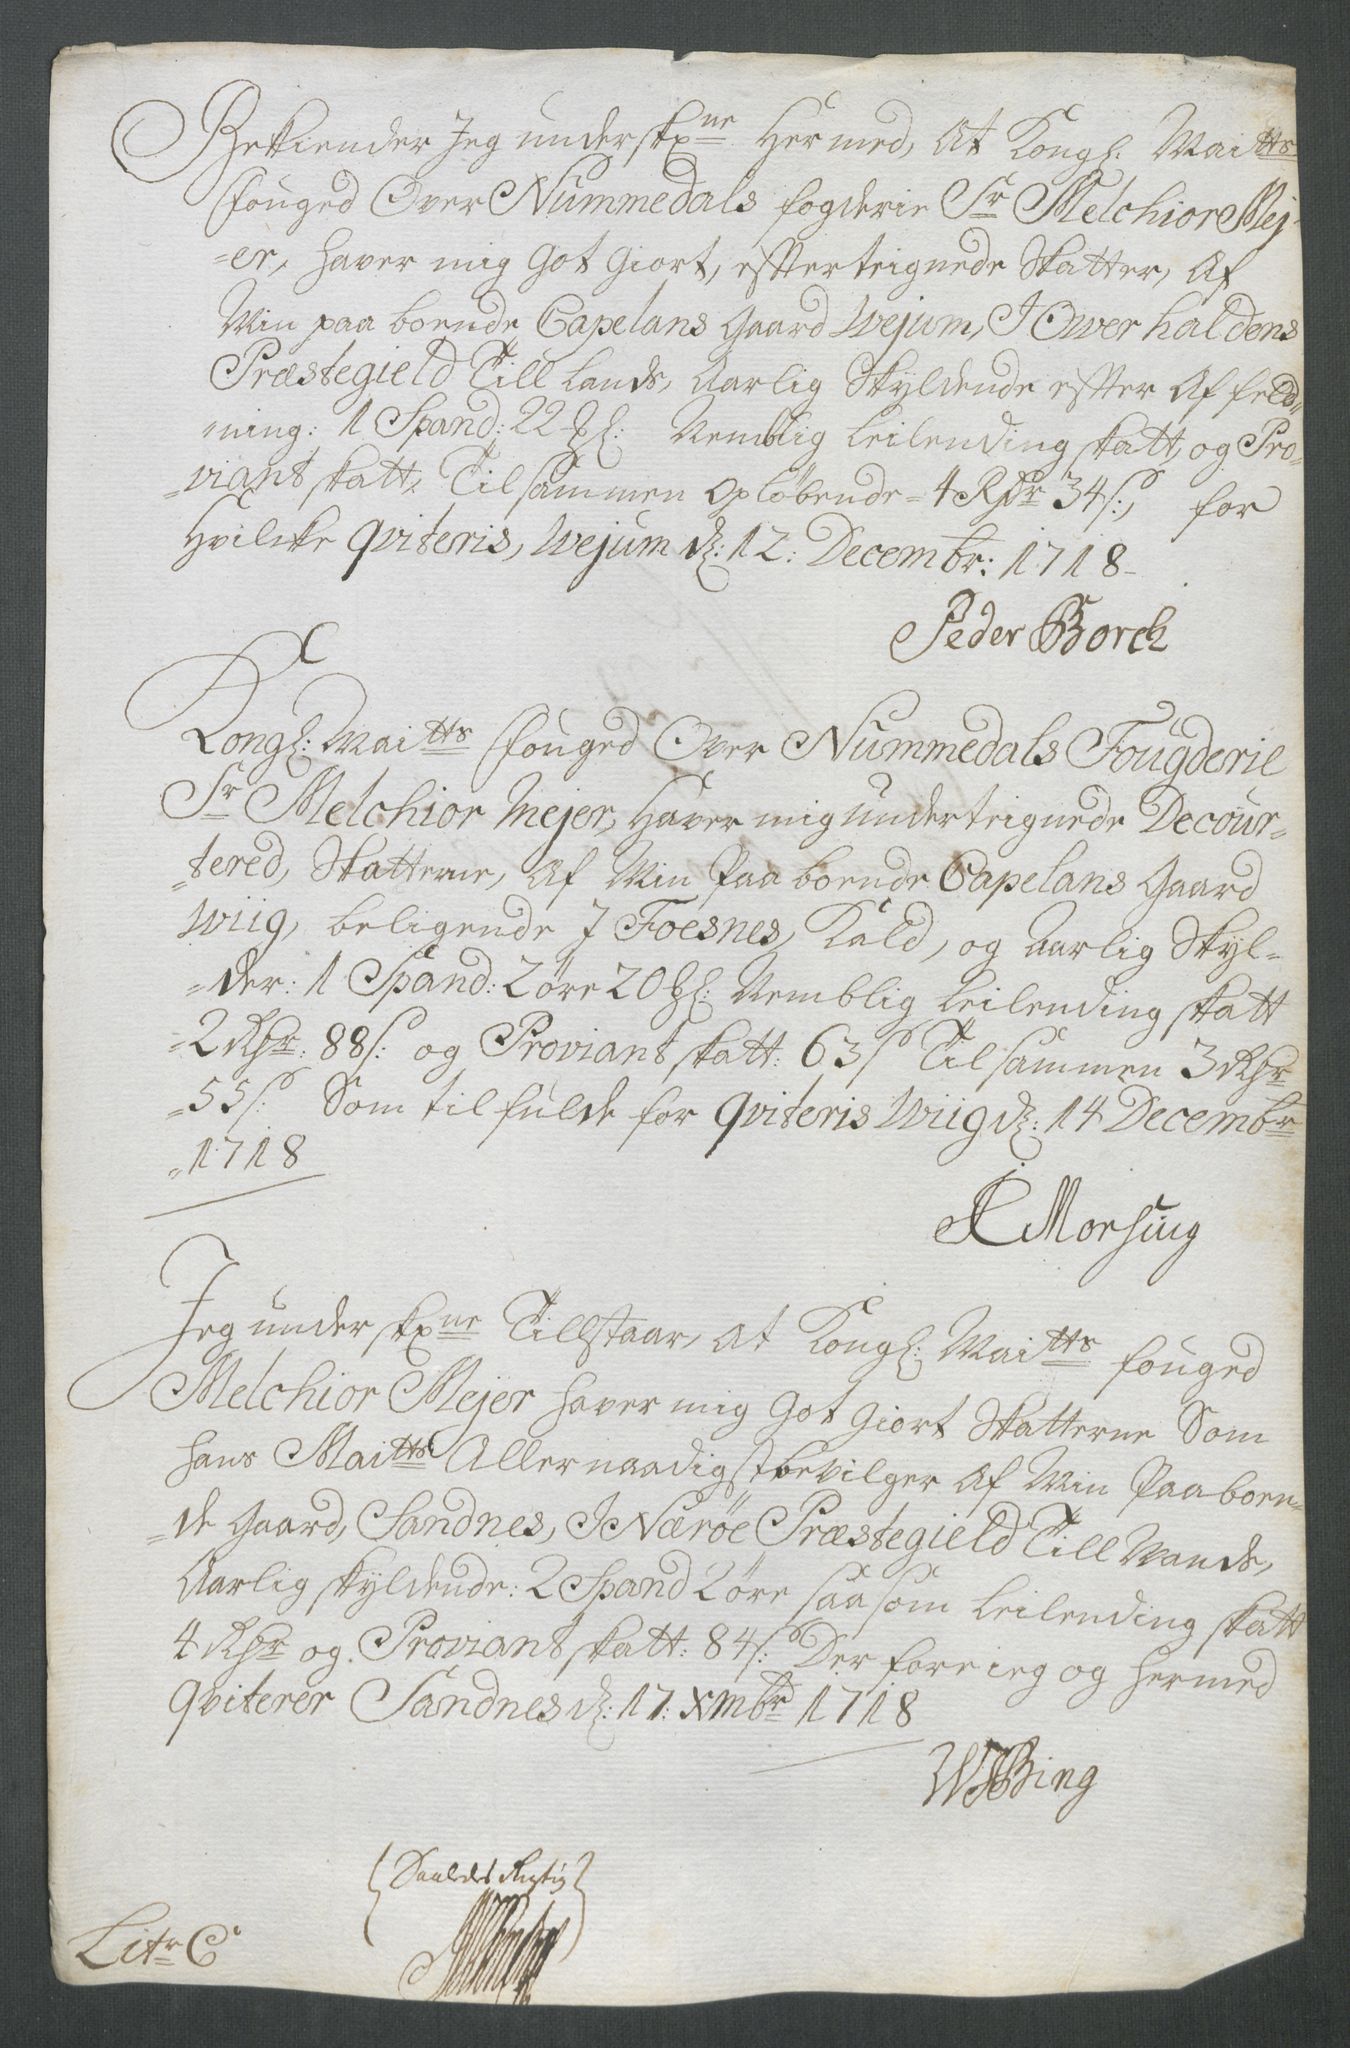 Bekiender Jeg underskrne Hermed, At Kongl: Maitts
fouged Over Nummedals fogderie Sr Melchior Mej-
-er, haver mig Got Giort, effterteignede Skatter, Af
Min paa boende Capelans Gaard Wejum, I Overhaldens
Præstegield Till Lands, Aarlig Skyldende effter Affeld-
ning: 1 Spand: 22 Ml: Nemblig Leilending skatt, og Pro-
-viant skatt, Tilsammen Opløbende = 4 Rdr 34 s:, for
Hvilcke qviteris, Wejum d: 12: Decembr: 1718-
Peder Borch
Kongl: Maitts fouged Over Nummedals Fougderie
Sr Melchior Mejer, Haver mig underteignede Decour-
-tered, Skatterne, Af Min Paa boende Capelans Gaard
Wiig, beligende I Foesnes, Kald, og Aarlig Skyl-
-der: 1 Spand: 2 øre 20 Ml: Nemblig Leilending skatt
-2 Rdr: 88 s: og Proviant skatt: 63 s Tilsammen 3 Rdr
-55 s: Som til fulde for qviteris Wiig d: 14 Decembr
-1718
Morsing
Jeg underskrne Tillstaar, At Kongl: Maitts fouged
Melchior Mejer haver mig Got Giort Skatterne Som
hans Maitts Allernaadigst bevilger Af Min Paaboen-
-de Gaard, Sandnes, I Nærøe Præstegield Till Vands,
Aarlig skyldende: 2 Spand 2 øre saasom Leilending skatt
4 Rdr og Proviant skatt: 84 s: Derfore ieg og hermed
qviterer Sandnes d: 17: Xmbr 1718
Bing
Saaledes Rigtig
Litr C